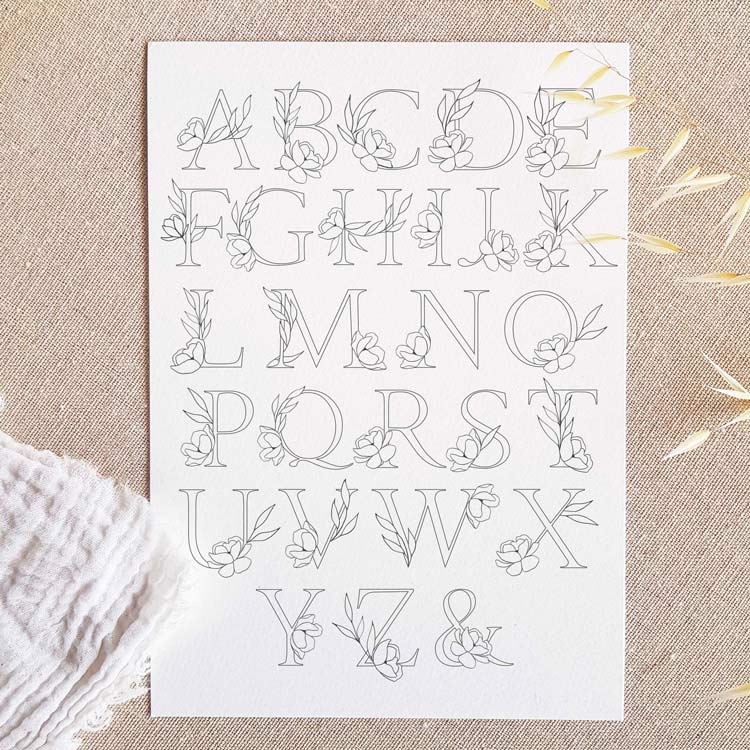 A B C D E
F G H I J K
L M N O
P Q R S T
U V W X
Y Z &